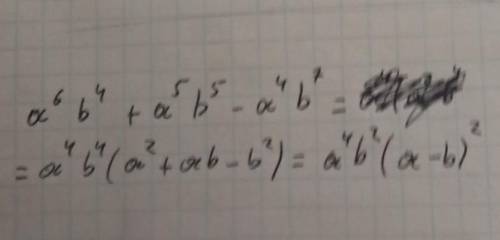 a⁶b⁴ + a⁵b⁵ - a⁴b⁷ =
= a⁴b⁴(a² + ab - b²) = a⁴b²(a - b)²